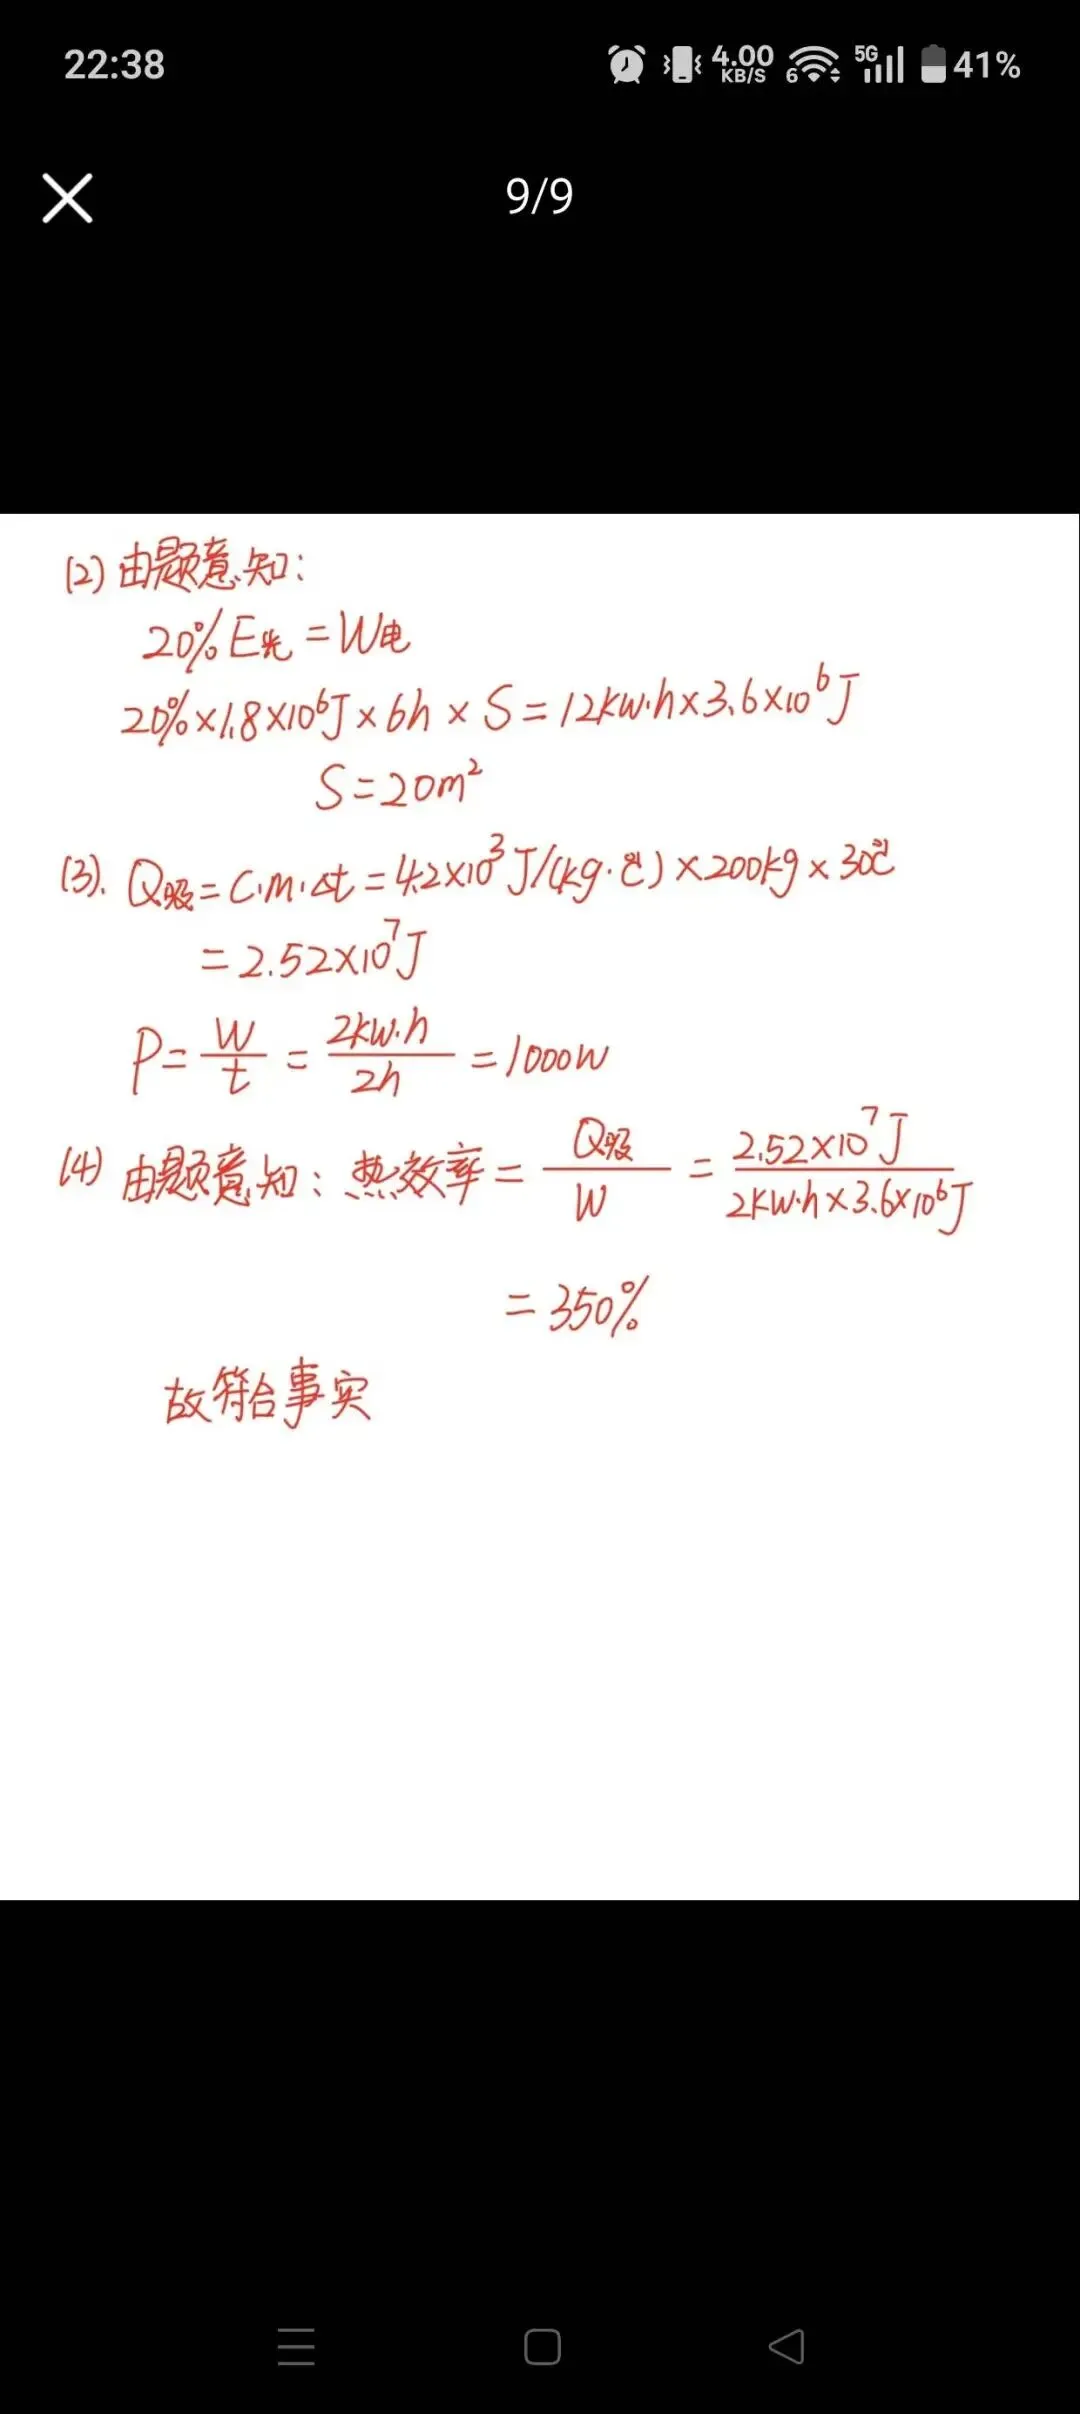 22:38
4.00 KB/S 6 5G 41%
9/9
(2) 由题意知:
20% E光 = W电
20%×1.8×10⁶J×6h×S=12kw·h×3.6×10⁶J
S=20m²
(3). Q吸=C·m·Δt=4.2×10³J/(kg·℃)×200kg×30℃
=2.52×10⁷J
P=W/t=2kw·h/2h=1000W
(4) 由题意知: 热效率=Q吸/W=2.52×10⁷J/2kw·h×3.6×10⁶J
=350%
故符合事实